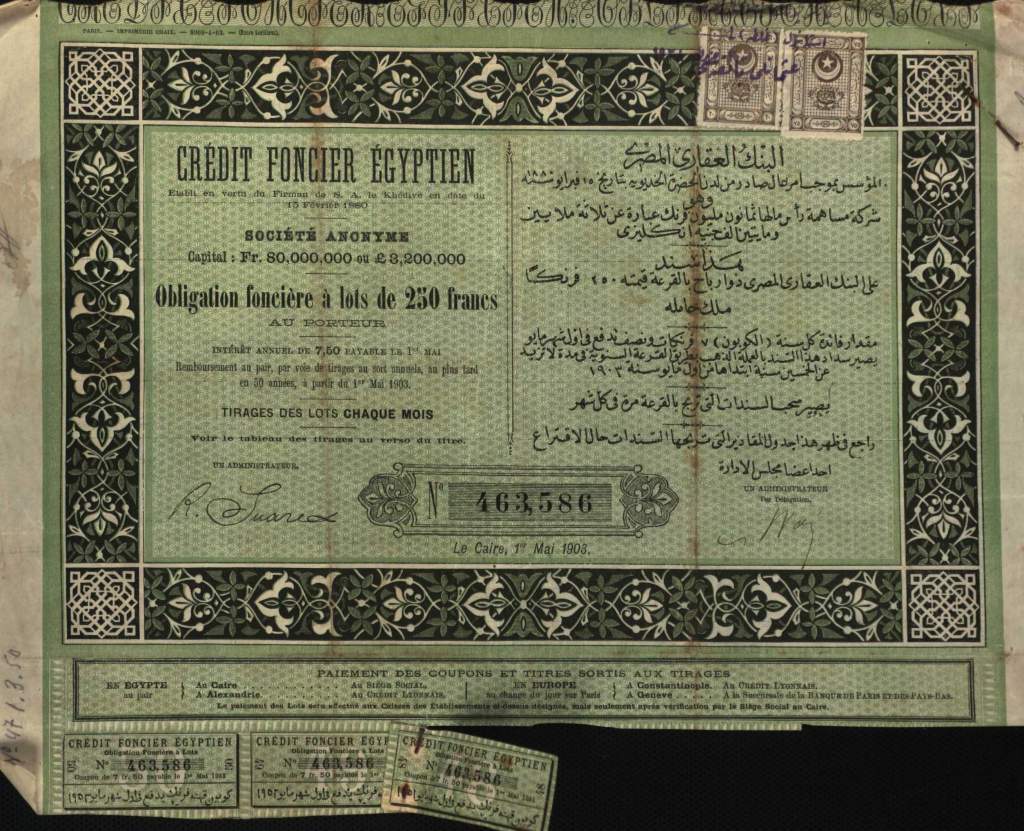 PARIS. — IMPRIMERIE CHAIX.
CRÉDIT FONCIER ÉGYPTIEN
Etabli en vertu du Firman de S. A. le Khédive en date du
15 Février 1880
SOCIÉTÉ ANONYME
Capital : Fr. 80,000,000 ou £ 3,200,000
Obligation foncière à lots de 250 francs
AU PORTEUR
INTÉRÊT ANNUEL DE 7,50 PAYABLE LE 1er MAI
Remboursement au pair, par voie de tirages au sort annuels, au plus tard
en 50 années, à partir du 1er Mai 1903.
TIRAGES DES LOTS CHAQUE MOIS
Voir le tableau des tirages au verso du titre.
UN ADMINISTRATEUR,
البنك العقارى المصرى
المؤسس بموجب امر عال صادر من لدن الحضرة الخديوية بتاريخ ١٥ فبراير سنة
وهو
شركة مساهمة رأس مالها ثمانون مليون فرنك عبارة عن ثلاثة ملايين
ومايتين الف جنيه انكليزى
هذا سند
على البنك العقارى المصرى ذو ارباح بالقرعة قيمته ٢٥٠ فرنكا
ملك حامله
مقدار فائدة كل سنة (الكوبون) ٧ فرنكات ونصف تدفع فى اول شهر مايو
يصير سداد هذا السند بالعملة الذهب بطريق القرعة السنوية فى مدة لا تزيد
عن الخمسين سنة ابتداها من اول مايو سنة ١٩٠٣
يصير سحب السندات التى تربح بالقرعة مرة فى كل شهر
راجع فى ظهر هذا جدول المقادير التى تربحها السندات حال الاقتراع
احد اعضا مجلس الادارة
UN ADMINISTRATEUR
Par Délégation,
No 463,586
Le Caire, 1er Mai 1903.
PAIEMENT DES COUPONS ET TITRES SORTIS AUX TIRAGES
EN EGYPTE au pair { Au Caire . . . Au SIÈGE SOCIAL.
A Alexandrie. . . . Au CRÉDIT LYONNAIS.
EN EUROPE au change du jour sur Paris { A Constantinople. Au CRÉDIT LYONNAIS.
A Genève . . . . A la Succursale de la BANQUE DE PARIS ET DES PAYS-BAS.
Le paiement des Lots sera effectué aux Caisses des Etablissements ci-dessus désignés, mais seulement après vérification par le Siège Social au Caire.
No 47 1.3.50
CRÉDIT FONCIER EGYPTIEN
Obligation Foncière à Lots
No 463,586
Coupon de 7 fr. 50 payable le 1er Mai 1953
CRÉDIT FONCIER EGYP
Obligation Foncière à Lots
No 463,586
Coupon de 7 fr. 50 payable le 1er Mai
CRÉDIT FONCIER EGYPTIEN
Obligation Foncière à Lots
No 463,586
Coupon de 7 fr. 50 payable le 1er Mai